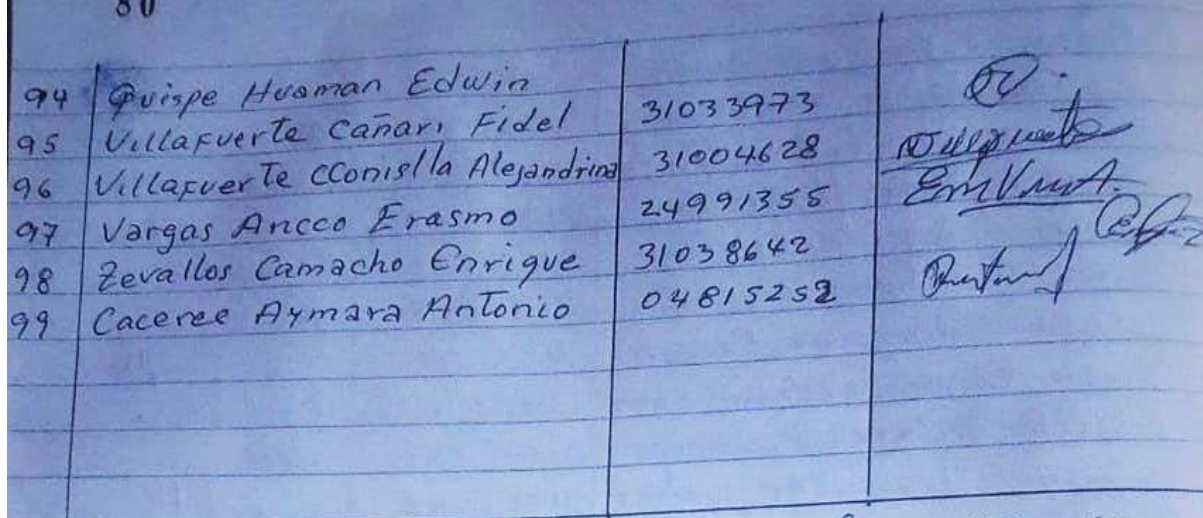 80
94 Quispe Huaman Edwin
95 Villafuerte Cañari Fidel 31033973
96 Villafuerte CConislla Alejandrina 31004628
97 Vargas Ancco Erasmo 24991355
98 Zevallos Camacho Enrique 31038642
99 Caceree Aymara Antonio 04815252